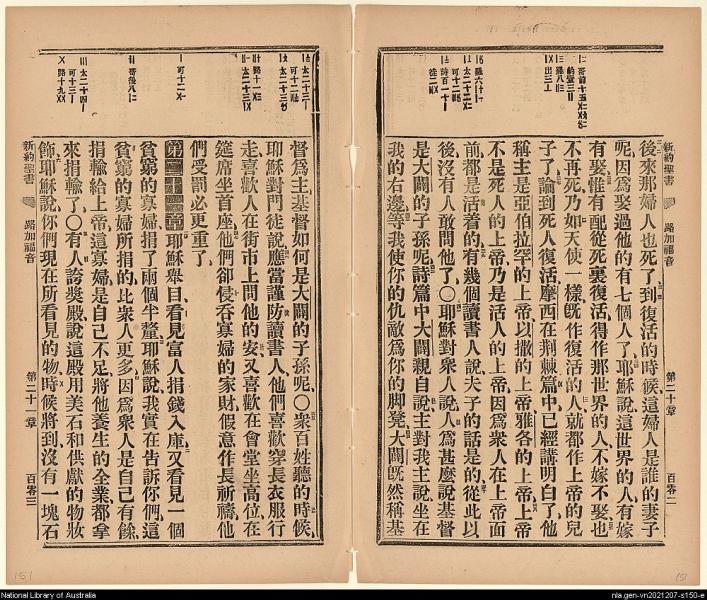 新約聖書 路加福音 第二十章 百零二
後來那婦人也死了到復活的時候這婦人是誰的妻子
呢因爲娶過他的有七個人了耶穌說這世界的人有嫁
有娶惟有配從死裏復活得作那世界的人不嫁不娶也
不再死乃如天使一樣旣作復活的人就都作上帝的兒
子了論到死人復活摩西在荆棘篇中已經講明白了他
稱主是亞伯拉罕的上帝以撒的上帝雅各的上帝上帝
不是死人的上帝乃是活人的上帝因爲衆人在上帝面
前都是活着的有幾個讀書人說夫子的話是的從此以
後沒有人敢問他了〇耶穌對衆人說人爲甚麽說基督
是大闢的子孫呢詩篇中大闢親自說主對我主說坐在
我的右邊等我使你的仇敵爲你的脚凳大闢旣然稱基
督爲主基督如何是大闢的子孫呢〇衆百姓聽的時候
耶穌對門徒說應當謹防讀書人他們喜歡穿長衣服行
走喜歡人在街市上問他的安又喜歡在會堂坐高位在
筵席坐首座他們卻侵吞寡婦的家財假意作長祈禱他
們受罰必更重了
第二十一章耶穌舉目看見富人捐錢入庫又看見一個
貧窮的寡婦捐了兩個半釐耶穌說我實在告訴你們這
貧窮的寡婦所捐的比衆人更多因爲衆人是自己有餘
捐輸給上帝這寡婦是自己不足將他養生的全業都拿
來捐輸了〇有人誇獎殿說這殿用美石和供獻的物妝
飾耶穌說你們現在所看見的物時候將到沒有一塊石
新約聖書 路加福音 第二十一章 百零三
151
151
National Library of Australia
nla.gen-vn2021207-s150-e